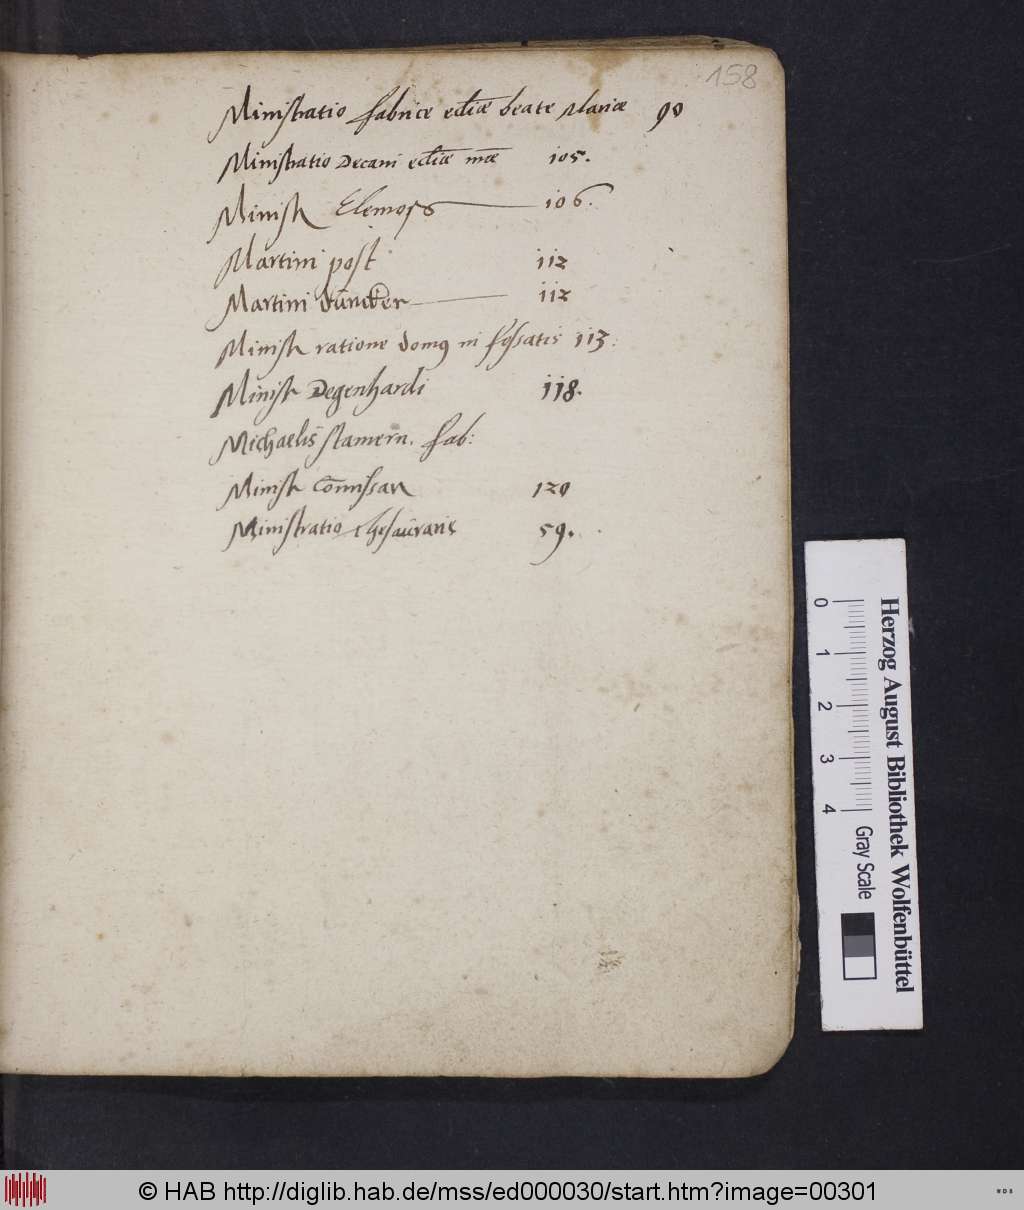 158
Ministratio fabrice eccliæ beate Mariæ 90
Ministratio Decani eccliæ mœ 105.
Ministr Elemoss 106.
Martini post 112
Martini dūmbter 112
Ministr ratione domus in fossatis 113:
Ministr Degenhardi 118.
Michaelis stamern. fab:
Ministr Commissar 120
Ministratio thesaurarie 59.
0 1 2 3 4
Gray Scale
Herzog August Bibliothek Wolfenbüttel
© HAB http://diglib.hab.de/mss/ed000030/start.htm?image=00301